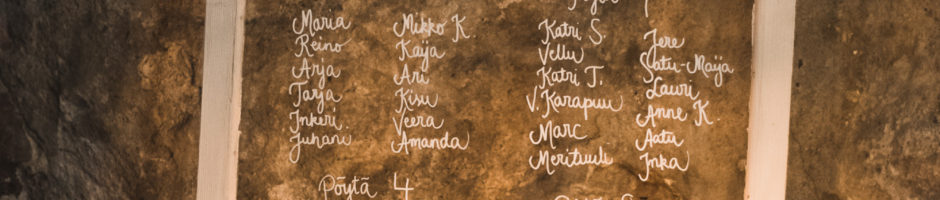 Maria
Reino
Arja
Tarja
Inkeri
Juhani
Mikko K.
Kaija
Ari
Kisu
Veera
Amanda
Katri S.
Vellu
Katri T.
V. Karapuu
Marc
Merituuli
Jere
Satu-Maija
Lauri
Anne K.
Aatu
Inka
Pöytä 4